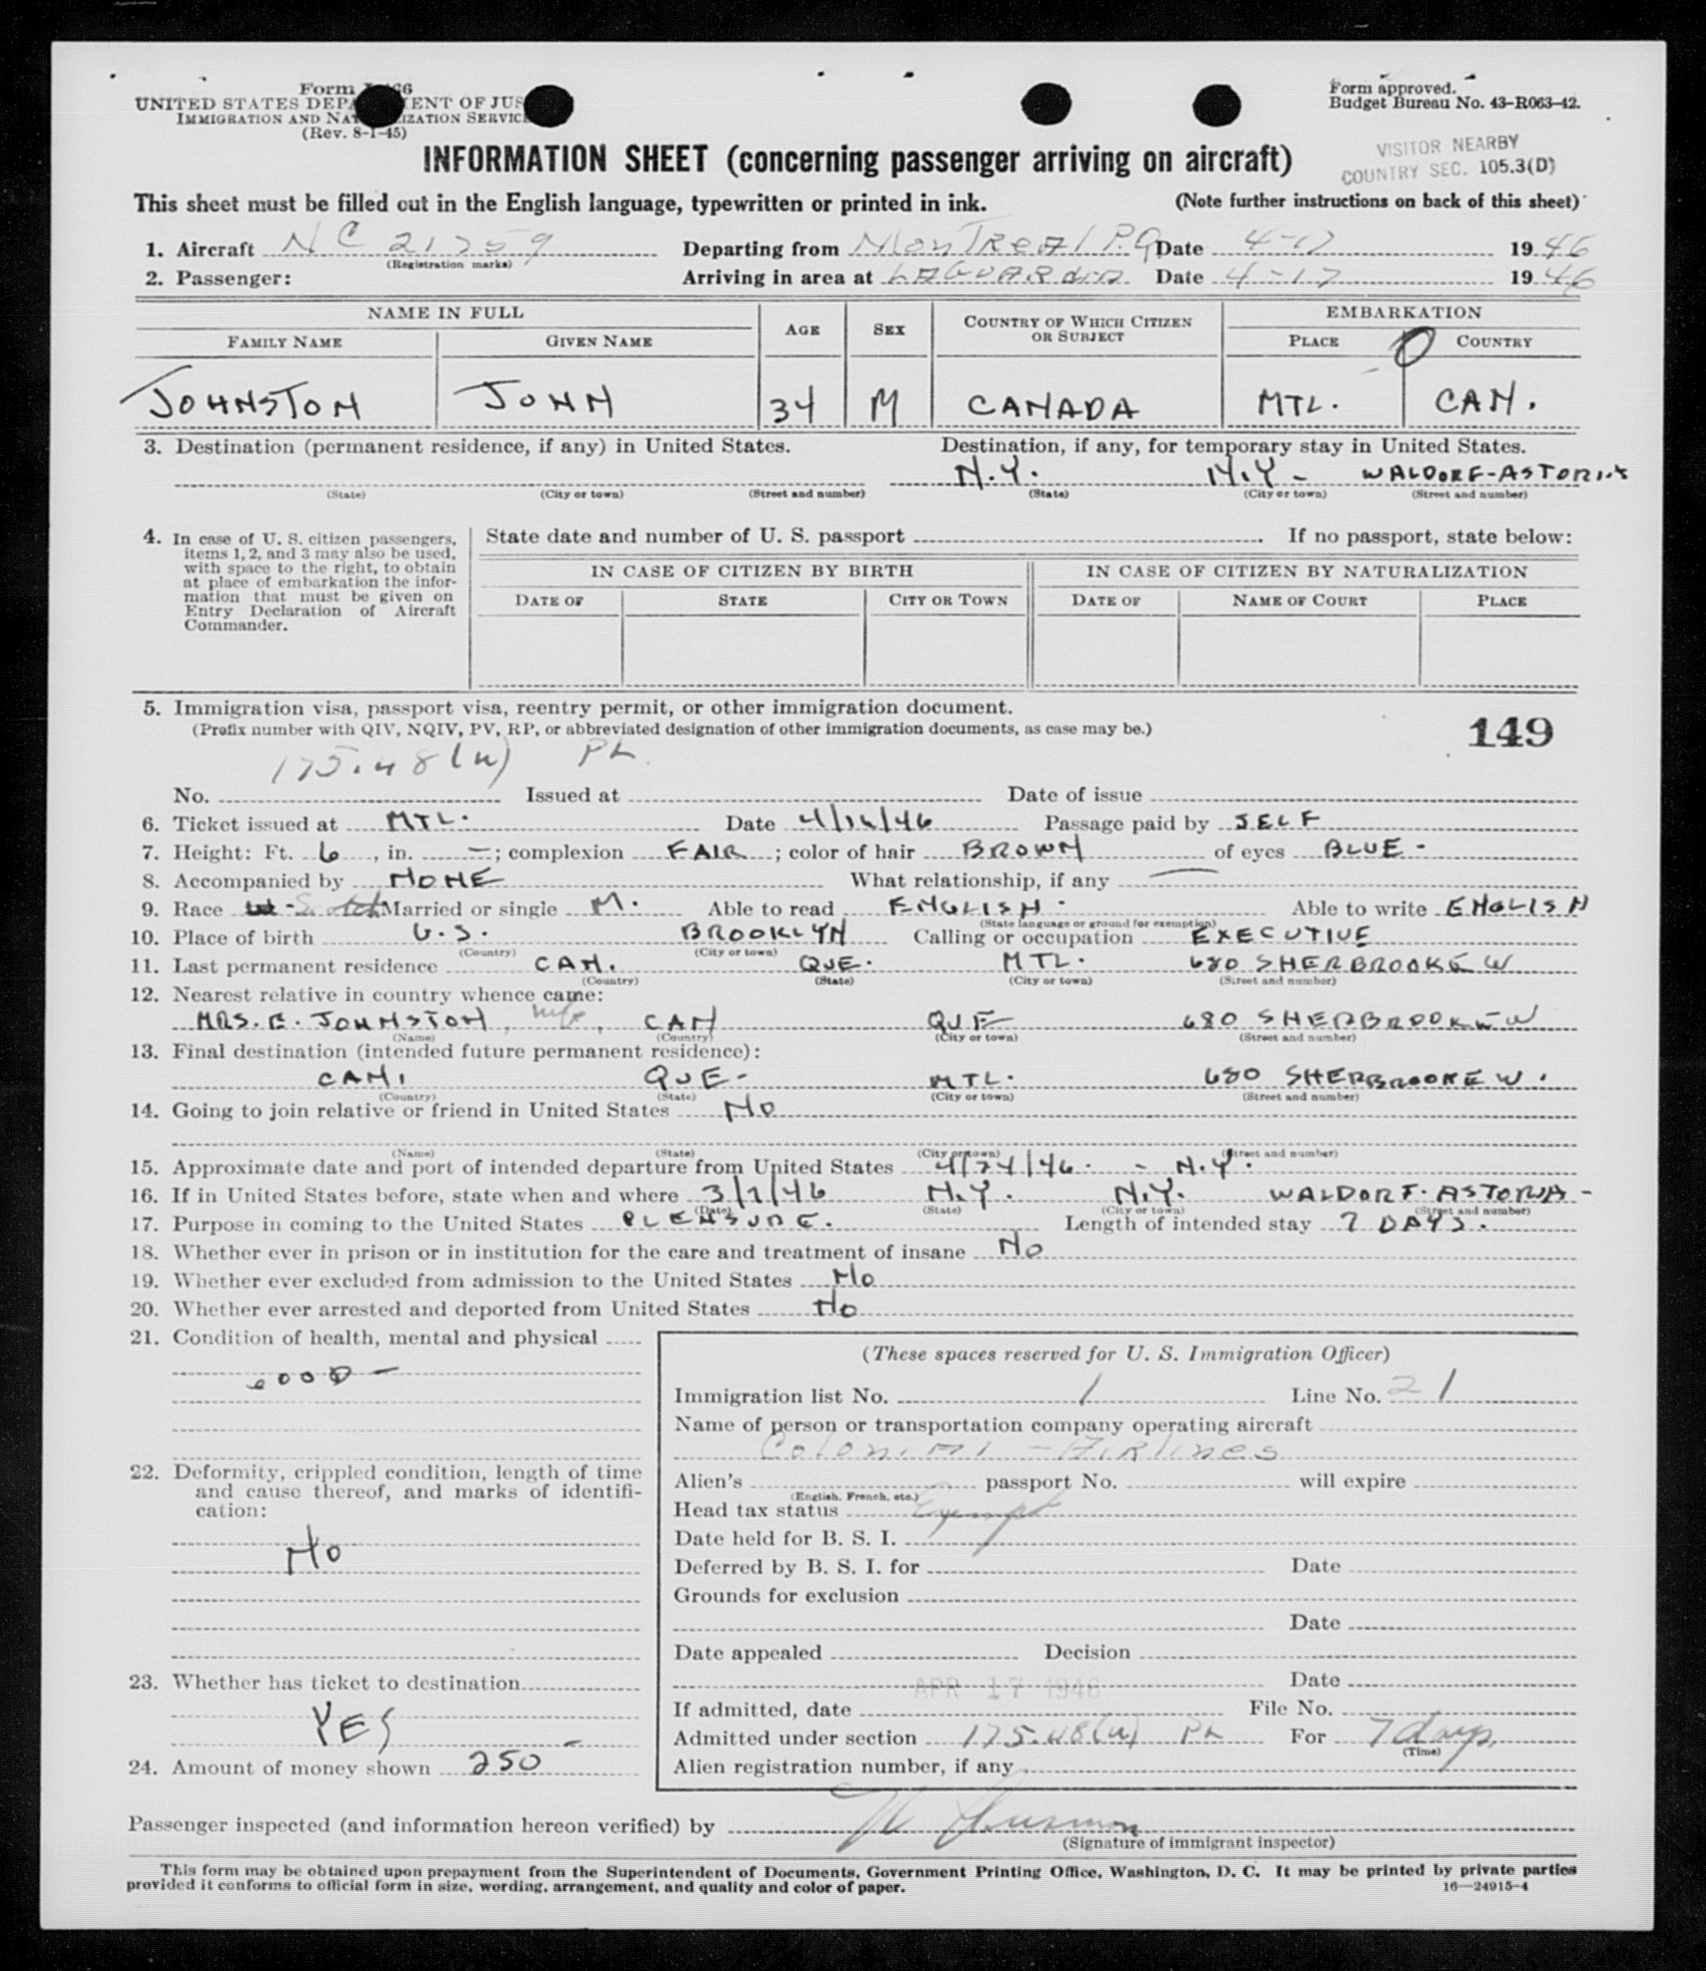 Form I-466
Form approved.
UNITED STATES DEPARTMENT OF JUSTICE
Budget Bureau No. 43-R063-42.
IMMIGRATION AND NATURALIZATION SERVICE
(Rev. 8-1-45)
VISITOR NEARBY
COUNTRY SEC. 105.3(D)
INFORMATION SHEET (concerning passenger arriving on aircraft)
This sheet must be filled out in the English language, typewritten or printed in ink. (Note further instructions on back of this sheet)
1. Aircraft NC 21759 (Registration marks) Departing from MonTReal P.Q Date 4-17 1946
2. Passenger: Arriving in area at LAGUARDIA Date 4-17 1946
NAME IN FULL AGE SEX COUNTRY OF WHICH CITIZEN OR SUBJECT EMBARKATION
FAMILY NAME GIVEN NAME PLACE COUNTRY
JOHNSTON JOHN 34 M CANADA MTL. CAN.
3. Destination (permanent residence, if any) in United States. Destination, if any, for temporary stay in United States.
N.Y. N.Y- WALDORF-ASTORIA
(State) (City or town) (Street and number) (State) (City or town) (Street and number)
4. In case of U. S. citizen passengers, items 1, 2, and 3 may also be used, with space to the right, to obtain at place of embarkation the information that must be given on Entry Declaration of Aircraft Commander.
State date and number of U. S. passport If no passport, state below:
IN CASE OF CITIZEN BY BIRTH IN CASE OF CITIZEN BY NATURALIZATION
DATE OF STATE CITY OR TOWN DATE OF NAME OF COURT PLACE
5. Immigration visa, passport visa, reentry permit, or other immigration document.
(Prefix number with QIV, NQIV, PV, RP, or abbreviated designation of other immigration documents, as case may be.)
149
175.48(u) PL
No. Issued at Date of issue
6. Ticket issued at MTL. Date 4/16/46 Passage paid by SELF
7. Height: Ft. 6, in. -; complexion FAIR; color of hair BROWN of eyes BLUE-
8. Accompanied by NONE What relationship, if any —
9. Race Scotch Married or single M. Able to read ENGLISH. Able to write ENGLISH
(State language or ground for exemption)
10. Place of birth U.S. BROOKLYN Calling or occupation EXECUTIVE
(Country) (City or town)
11. Last permanent residence CAN. QUE. MTL. 680 SHERBROOKE W
(Country) (State) (City or town) (Street and number)
12. Nearest relative in country whence came:
MRS. C. JOHNSTON, wife, CAN QUE 680 SHERBROOKE W
(Name) (Country) (City or town) (Street and number)
13. Final destination (intended future permanent residence):
CAN. QUE- MTL. 680 SHERBROOKE W.
(Country) (State) (City or town) (Street and number)
14. Going to join relative or friend in United States No
(Name) (State) (City or town) (Street and number)
15. Approximate date and port of intended departure from United States 4/24/46. - N.Y.
16. If in United States before, state when and where 3/1/46 N.Y. N.Y. WALDORF-ASTORIA-
(Date) (State) (City or town) (Street and number)
17. Purpose in coming to the United States PLEASURE. Length of intended stay 7 DAYS.
18. Whether ever in prison or in institution for the care and treatment of insane No
19. Whether ever excluded from admission to the United States No
20. Whether ever arrested and deported from United States No
21. Condition of health, mental and physical
GOOD-
22. Deformity, crippled condition, length of time and cause thereof, and marks of identification:
No
23. Whether has ticket to destination
YES-
24. Amount of money shown 250
(These spaces reserved for U. S. Immigration Officer)
Immigration list No. 1 Line No. 21
Name of person or transportation company operating aircraft
Colonial - Airlines
Alien's passport No. will expire
(English, French, etc.)
Head tax status Exempt
Date held for B. S. I.
Deferred by B. S. I. for Date
Grounds for exclusion
Date
Date appealed Decision
APR 17 1946 Date
If admitted, date File No.
Admitted under section 175.48(u) PL For 7 days.
(Time)
Alien registration number, if any
Passenger inspected (and information hereon verified) by
(Signature of immigrant inspector)
This form may be obtained upon prepayment from the Superintendent of Documents, Government Printing Office, Washington, D. C. It may be printed by private parties
provided it conforms to official form in size, wording, arrangement, and quality and color of paper. 16—24915-4